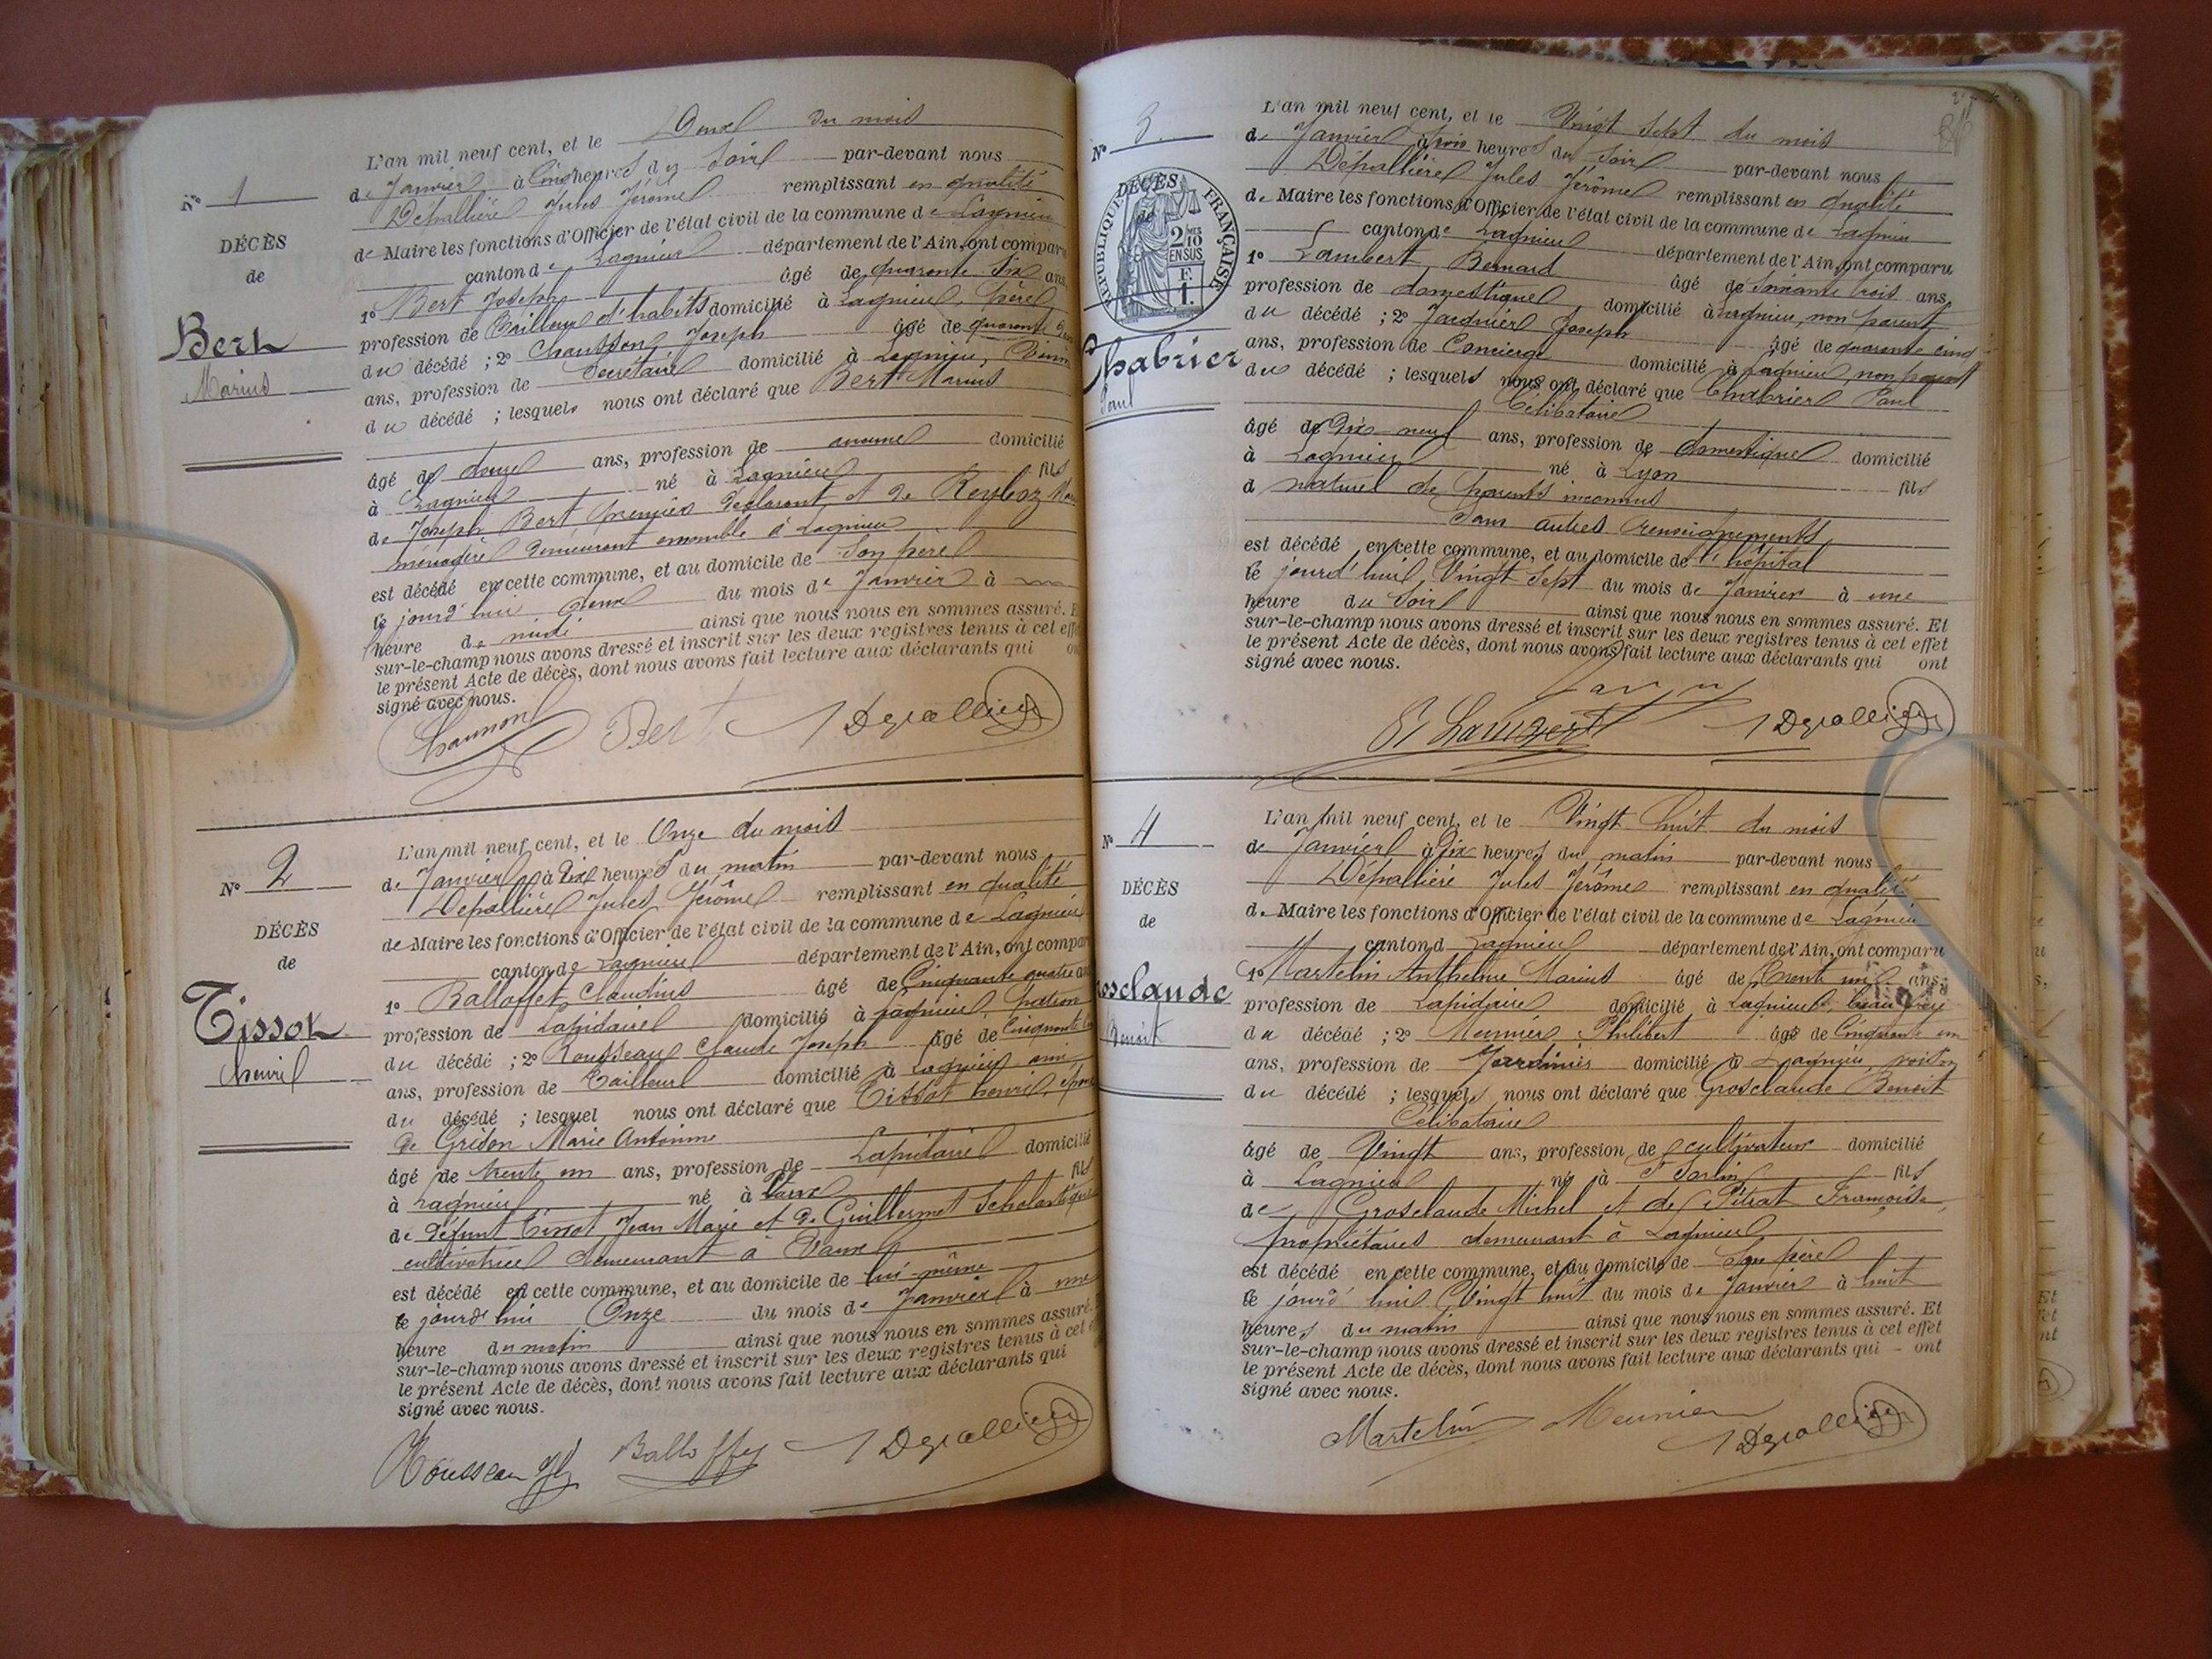 N° 1
DÉCÈS
de
Bert
Marius
L'an mil neuf cent, et le Deux du mois
de Janvier à Cinq heures du Soir par-devant nous
Dépallière Jules Jérôme remplissant en qualité
de Maire les fonctions d'Officier de l'état civil de la commune de Lagnieu
canton de Lagnieu département de l'Ain, ont comparu
1° Bert Joseph âgé de quarante six ans,
profession de Tailleur d'habits domicilié à Lagnieu, père
du décédé ; 2° Chausson Joseph âgé de quarante
ans, profession de Secrétaire domicilié à Lagnieu,
du décédé ; lesquels nous ont déclaré que Bert Marius
âgé de douze ans, profession de aucune domicilié
à Lagnieu né à Lagnieu fils
de Joseph Bert premier déclarant et de Reyboz
ménagère demeurant ensemble à Lagnieu
est décédé en cette commune, et au domicile de Son père
le jourd'hui deux du mois de Janvier à
heure de midi ainsi que nous nous en sommes assuré. E
sur-le-champ nous avons dressé et inscrit sur les deux registres tenus à cet eff
le présent Acte de décès, dont nous avons fait lecture aux déclarants qui on
signé avec nous.
Chausson Bert J Depallière
N° 2
DÉCÈS
de
Tissot
henri
L'an mil neuf cent, et le Onze du mois
de Janvier à Dix heures du matin par-devant nous
Depallière Jules Jérôme remplissant en qualité
de Maire les fonctions d'Officier de l'état civil de la commune de Lagnieu
canton de Lagnieu département de l'Ain, ont compar
1° Balloffet Claudius âgé de Cinquante quatre ans
profession de Lapidaire domicilié à Lagnieu, patron
du décédé ; 2° Rousseau Claude Joseph âgé de Cinquante
ans, profession de Tailleur domicilié à Lagnieu ami
du décédé ; lesquel nous ont déclaré que Tissot henri, époux
de Gridon Marie Antonine
âgé de trente un ans, profession de Lapidaire domicilié
à Lagnieu né à Vaux fils
de défunt Tissot Jean Marie et de Guillermet Scholastique
cultivatrice demeurant à Vaux
est décédé en cette commune, et au domicile de lui-même
le jourd'hui Onze du mois de Janvier à une
heure du matin ainsi que nous nous en sommes assuré.
sur-le-champ nous avons dressé et inscrit sur les deux registres tenus à cet
le présent Acte de décès, dont nous avons fait lecture aux déclarants qui
signé avec nous.
Rousseau Balloffet J Depallière
N° 3
DÉCÈS
de
RÉPUBLIQUE FRANÇAISE
2 10 MES EN SUS
F. 1.
Chabrier
Paul
L'an mil neuf cent, et le Vingt Sept du mois
de Janvier à trois heures du Soir par-devant nous
Dépallière Jules Jérôme remplissant en qualité
de Maire les fonctions d'Officier de l'état civil de la commune de Lagnieu
canton de Lagnieu département de l'Ain, ont comparu
1° Lambert Bernard âgé de Soixante trois ans,
profession de domestique domicilié à Lagnieu, non parent
du décédé ; 2° Jacquier Joseph âgé de quarante cinq
ans, profession de Concierge domicilié à Lagnieu, non parent
du décédé ; lesquels nous ont déclaré que Chabrier Paul
Célibataire
âgé de Dix-neuf ans, profession de domestique domicilié
à Lagnieu né à Lyon fils
d naturel de parents inconnus
Sans autres renseignements
est décédé en cette commune, et au domicile de l'hôpital
le jourd'hui Vingt Sept du mois de Janvier à une
heure du Soir ainsi que nous nous en sommes assuré. Et
sur-le-champ nous avons dressé et inscrit sur les deux registres tenus à cet effet
le présent Acte de décès, dont nous avons fait lecture aux déclarants qui ont
signé avec nous.
Lambert J Depallière
N° 4
DÉCÈS
de
osclaude
Benoit
L'an mil neuf cent, et le Vingt huit du mois
de Janvier à Dix heures du matin par-devant nous
Dépallière Jules Jérôme remplissant en qualité
de Maire les fonctions d'Officier de l'état civil de la commune de Lagnieu
canton d Lagnieu département de l'Ain, ont comparu
1° Martelin Anthelme Marius âgé de Trente un ans,
profession de Lapidaire domicilié à Lagnieu, beau frère
du décédé ; 2° Meunier Philibert âgé de Cinquante un
ans, profession de Jardinier domicilié à Lagnieu, voisin
du décédé ; lesquels nous ont déclaré que Grosclaude Benoit
Célibataire
âgé de Vingt ans, profession de cultivateur domicilié
à Lagnieu né à St Sorlin fils
de Grosclaude Michel et de Pitrat Françoise,
propriétaires demeurant à Lagnieu
est décédé en cette commune, et au domicile de Son père
le jourd'hui Vingt huit du mois de Janvier à huit
heures du matin ainsi que nous nous en sommes assuré. Et
sur-le-champ nous avons dressé et inscrit sur les deux registres tenus à cet effet
le présent Acte de décès, dont nous avons fait lecture aux déclarants qui ont
signé avec nous.
Martelin Meunier J Depallière